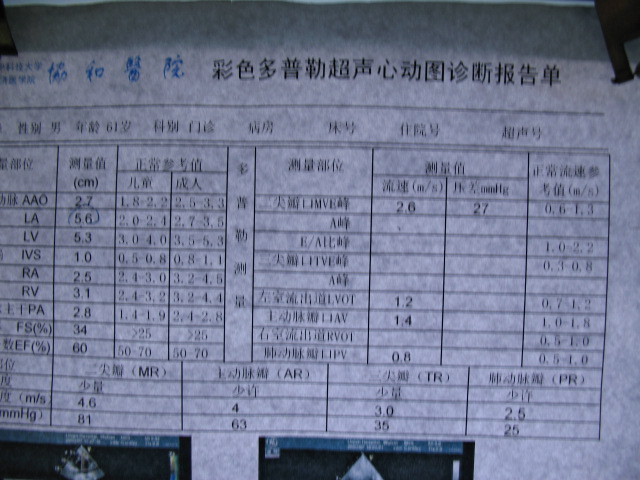 科技大学
医学院 協和醫院 彩色多普勒超声心动图诊断报告单
性别 男 年龄 61岁 科别 门诊 病房 床号 住院号 超声号
量部位 测量值 正常参考值 多普勒测量 测量部位 测量值 正常流速参
(cm) 儿童 成人 流速(m/s) 压差mmHg 考值(m/s)
动脉 AAO 2.7 1.8-2.2 2.5-3.3 二尖瓣口MVE峰 2.6 27 0.6-1.3
LA 5.6 2.0-2.4 2.7-3.5 A峰
LV 5.3 3.0-4.0 3.5-5.3 E/A比峰 1.0-2.2
IVS 1.0 0.5-0.8 0.8-1.1 三尖瓣口TVE峰 0.3-0.8
RA 2.5 2.4-3.0 3.2-4.5 A峰
RV 3.1 2.4-3.2 3.2-4.4 左室流出道LVOT 1.2 0.7-1.2
主干PA 2.8 1.4-1.9 2.4-2.8 主动脉瓣口AV 1.4 1.0-1.8
FS(%) 34 >25 >25 右室流出道RVOT 0.5-1.0
数EF(%) 60 50-70 50-70 肺动脉瓣口PV 0.8 0.5-1.0
部位 二尖瓣（MR） 主动脉瓣（AR） 三尖瓣（TR） 肺动脉瓣（PR）
度 少量 少许 少量 少许
度(m/s 4.6 4 3.0 2.5
mmHg) 81 63 35 25